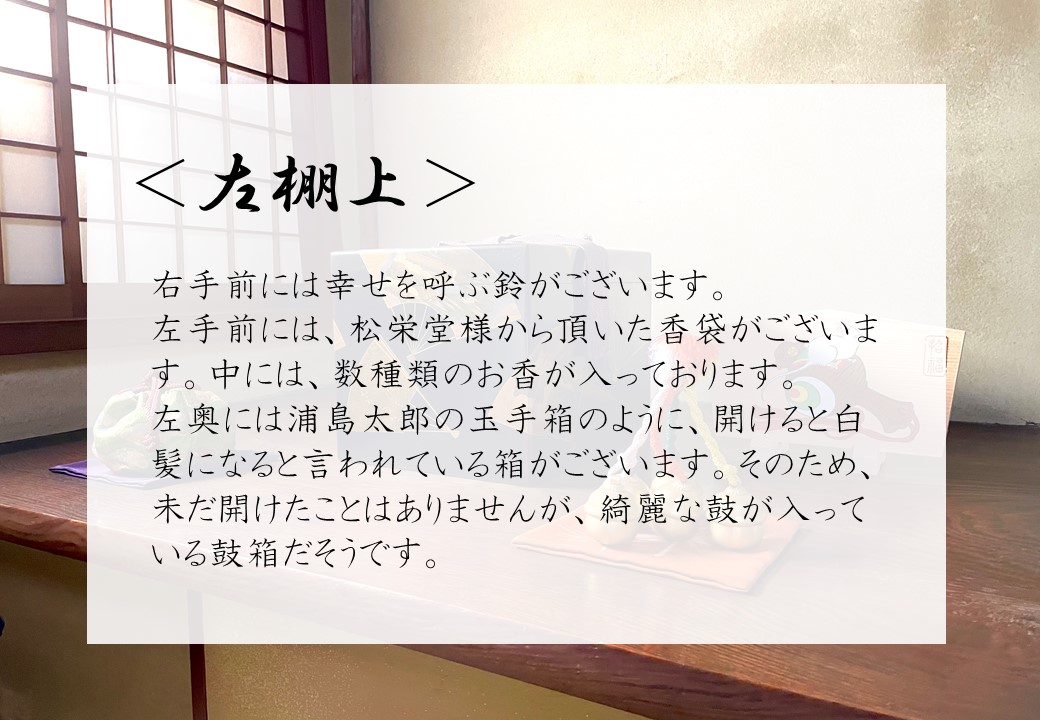 ＜左棚上＞
右手前には幸せを呼ぶ鈴がございます。
左手前には、松栄堂様から頂いた香袋がございま
す。中には、数種類のお香が入っております。
左奥には浦島太郎の玉手箱のように、開けると白
髪になると言われている箱がございます。そのため、
未だ開けたことはありませんが、綺麗な鼓が入って
いる鼓箱だそうです。